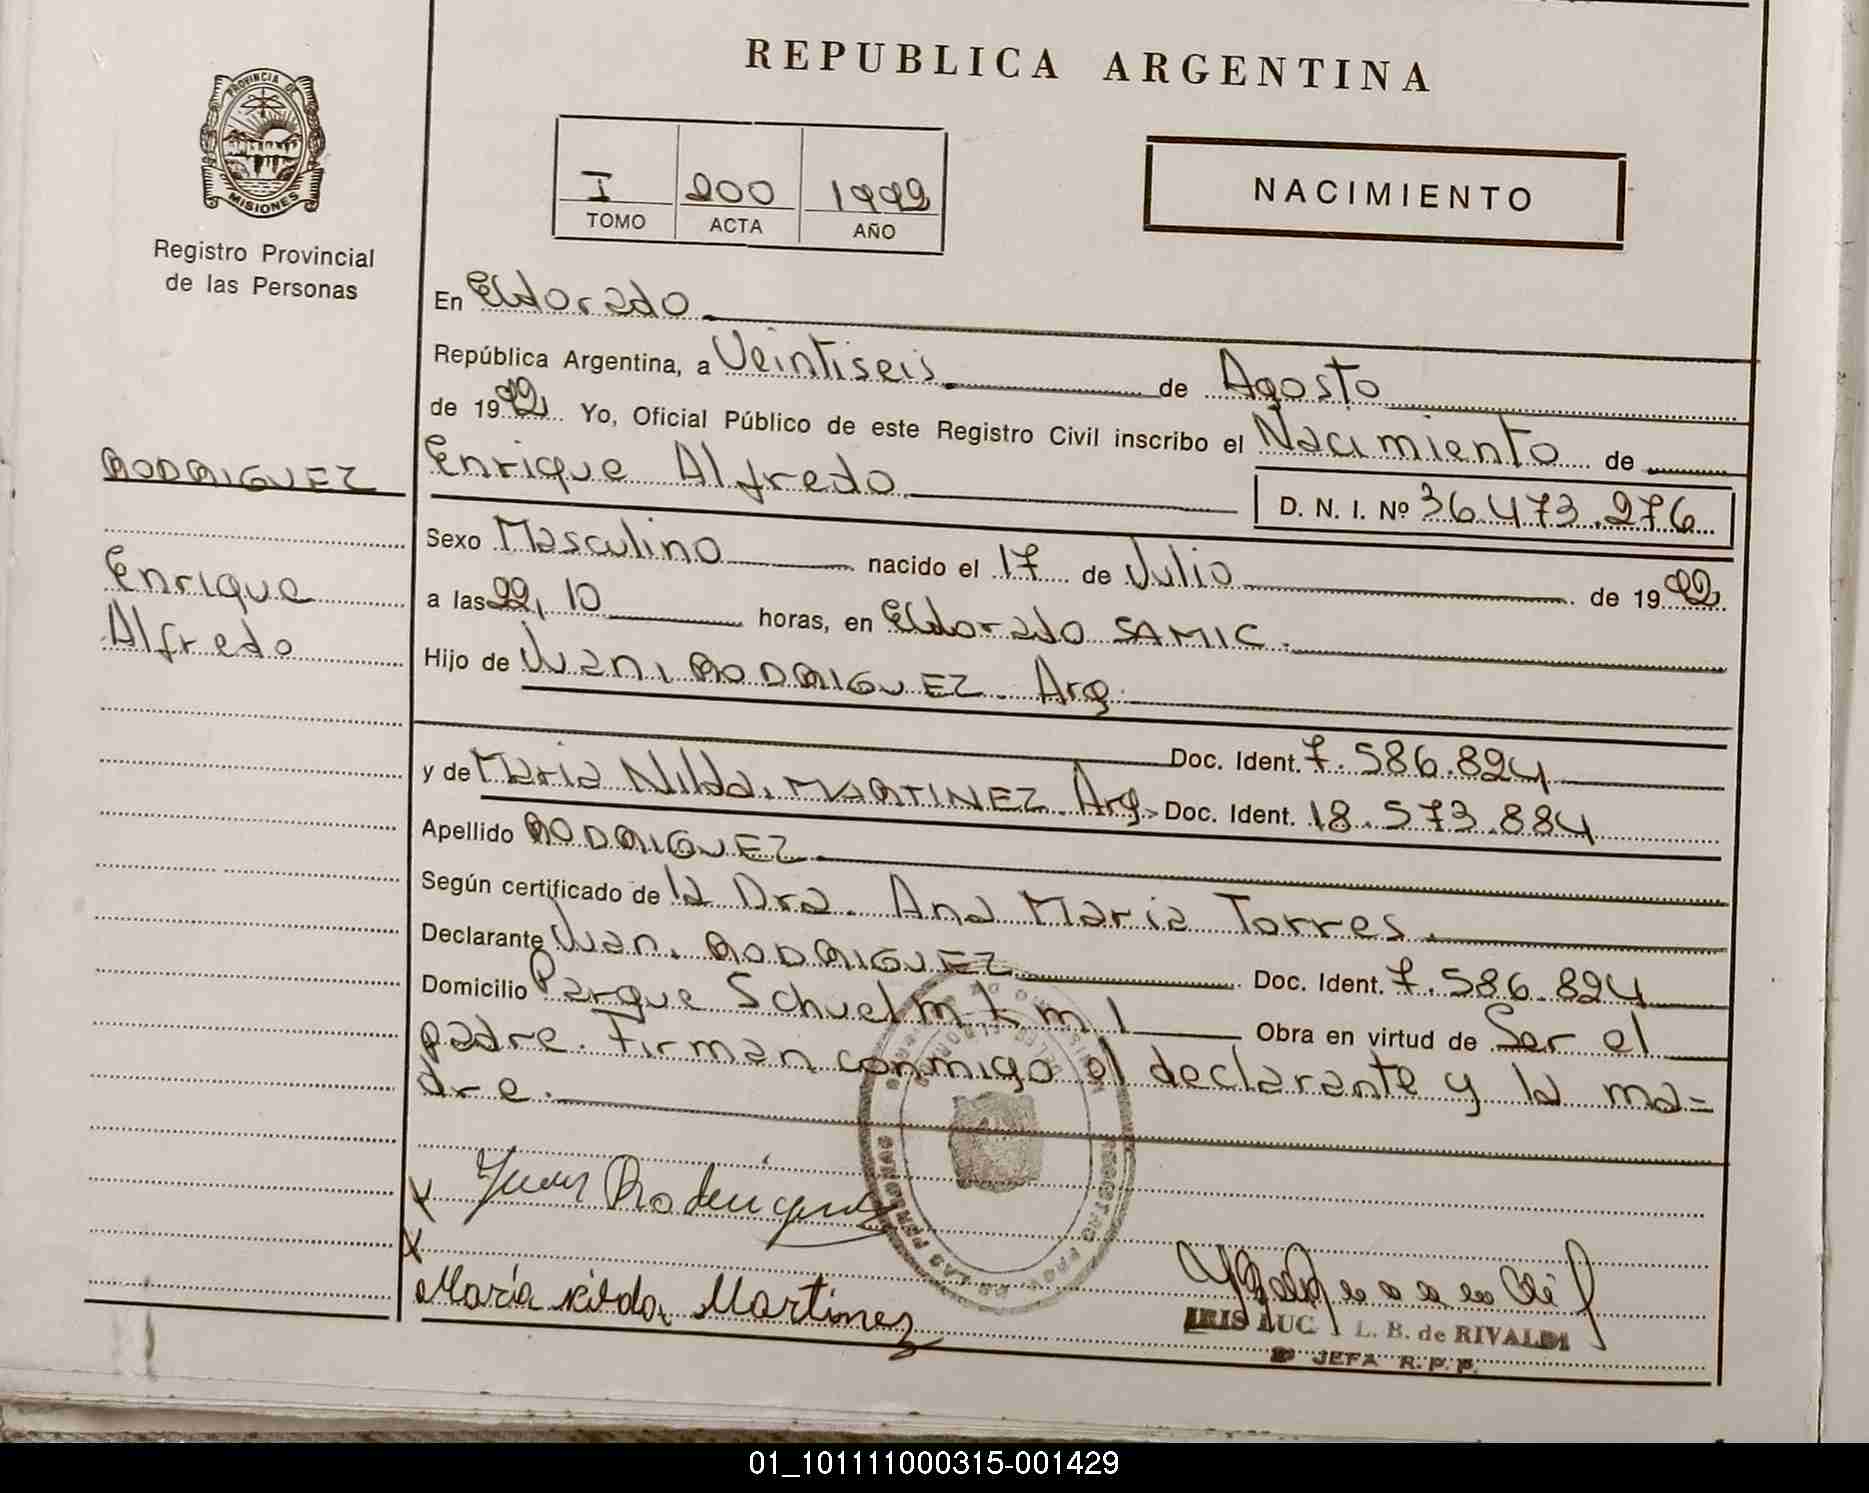 REPUBLICA ARGENTINA
PROVINCIA DE
MISIONES
Registro Provincial
de las Personas
I 200 1992
TOMO ACTA AÑO
NACIMIENTO
En Eldorado
República Argentina, a Veintiseis de Agosto
de 1992 Yo, Oficial Público de este Registro Civil inscribo el Nacimiento de
RODRIGUEZ
Enrique
Alfredo
Enrique Alfredo
D. N. I. Nº 36.473.276
Sexo Masculino nacido el 17 de Julio de 1992
a las 22,10 horas, en Eldorado SAMIC.
Hijo de Juan, RODRIGUEZ. Arg.
Doc. Ident. 7.586.824
y de Maria Nilda, MARTINEZ. Arg. Doc. Ident. 18.573.884
Apellido RODRIGUEZ
Según certificado de la Dra. Ana Maria Torres.
Declarante Juan, RODRIGUEZ Doc. Ident. 7.586.824
Domicilio Parque Schuelm km 1 Obra en virtud de Ser el
padre. Firman conmigo el declarante y la ma=
dre.
x Juan Rodriguez
x
María nilda Martinez
IRIS LUC L. B. de RIVALDI
JEFA R. P. P.
01_101111000315-001429